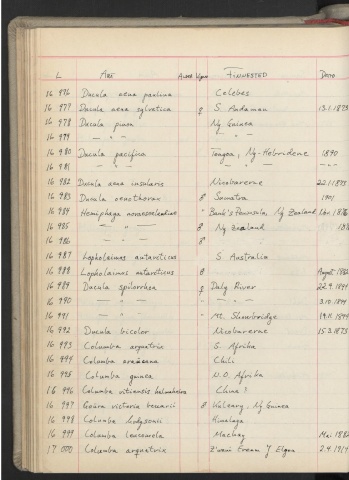 L Art Alder Kjøn Finnested Dato
16 976 Ducula aena paulina Celebes
16 977 Ducula aena sylvatica ♀ S. Andaman 13.1.1873
16 978 Ducula pinon Ny Guinea
16 979 — " — — " —
16 980 Ducula pacifica Tongoa, Ny-Hebridene 1890
16 981 — " — — " — — " —
16 982 Ducula aena insularis Nicobarerne
16 983 Ducula oenothorax ♂ Sumatra 1901
16 984 Hemiphaga novaeseelandiae " Bank's Peninsula, Ny Zealand
16 985 — " — ♂ Ny Zealand
16 986 ♂ — " —
16 987 Lopholaimus antarcticus S Australia
16 988 Lopholaimus antarcticus ♂ August
16 989 Ducula spilorrhoa ♀ Daly River 22.9.1894
16 990 — " — — " — 3.10.1894
16 991 — " — " Mt. Shawbridge 19.11.1894
16 992 Ducula bicolor Nicobarerne 15.3.1873
16 993 Columba arquatrix S. Afrika
16 994 Columba araucana Chili
16 995 Columba guinea N.O. Afrika
16 996 Columba vitiensis halmaheira China ?
16 997 Goura victoria beccarii ♂ Ny Guinea
16 998 Columba hodgsonii Himalaya
16 999 Columba leucomela Mackay Mai
17 000 Columba arquatrix Elgon 2.4.1914